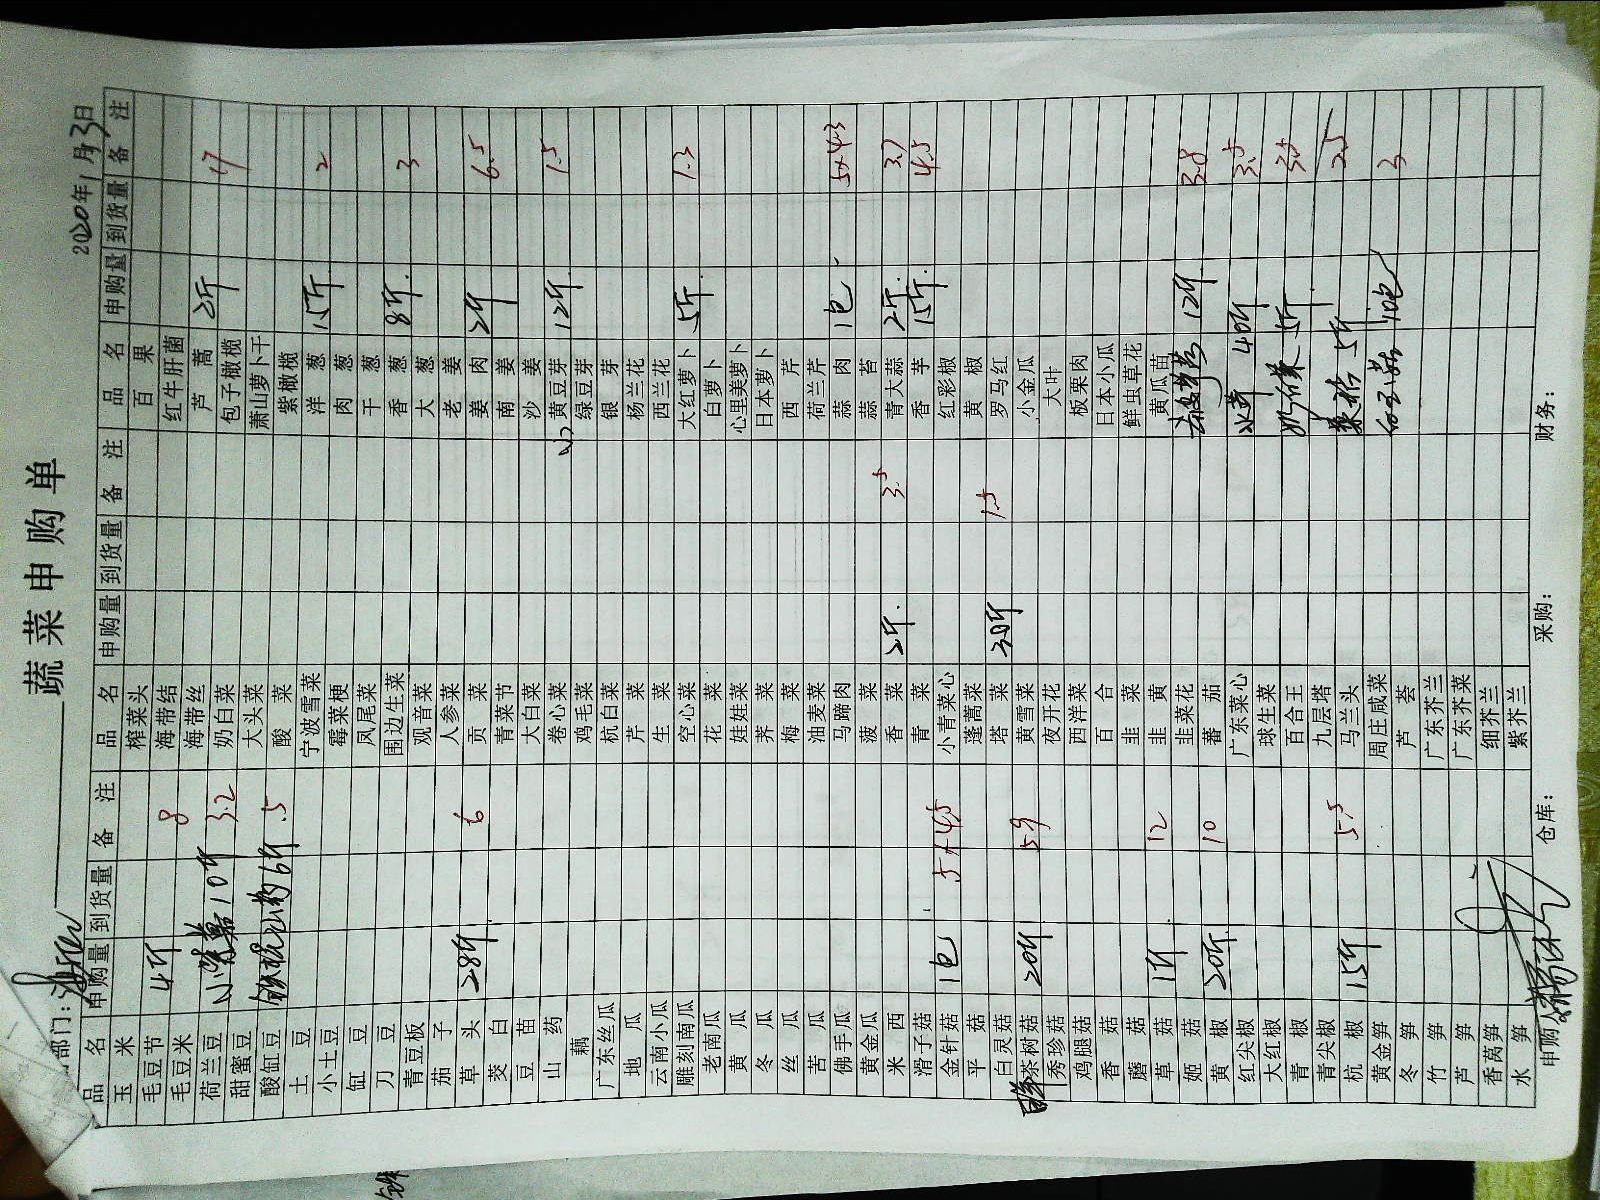 蔬菜申购单
部门: 2020年1月3日
品名 申购量 到货量 备注 品名 申购量 到货量 备注 品名 申购量 到货量 备注
玉米 榨菜头 百果
毛豆节 4斤 海带结 红牛肝菌
毛豆米 8 海带丝 芦蒿 2斤
荷兰豆 10斤 3.2 奶白菜 包子橄榄 17
甜蜜豆 大头菜 萧山萝卜干
酸缸豆 铁棍山药6斤 .5 酸菜 紫橄榄
土豆 宁波雪菜 洋葱 15斤 2
小土豆 霉菜梗 肉葱
缸豆 凤尾菜 干葱
刀豆 围边生菜 香葱 8斤 3
青豆板 观音菜 大葱
茄子 人参菜 老姜
草头 28斤 6 贡菜 姜肉 2斤 6.5
茭白 青菜节 南姜
豆苗 大白菜 沙姜
山药 卷心菜 黄豆芽 12斤 1.5
藕 鸡毛菜 绿豆芽
广东丝瓜 杭白菜 银芽
地瓜 芹菜 杨兰花
云南小瓜 生菜 西兰花
雕刻南瓜 空心菜 大红萝卜 5斤 1.3
老南瓜 花菜 白萝卜
黄瓜 娃娃菜 心里美萝卜
冬瓜 荠菜 日本萝卜
丝瓜 梅菜 西芹
苦瓜 油麦菜 荷兰芹
佛手瓜 马蹄肉 蒜肉 1包 5x43
黄金瓜 菠菜 蒜苔
米西 香菜 2斤 3.5 青大蒜 2斤 3.7
滑子菇 青菜 香芋 15斤 4.5
金针菇 1包 5x45 小青菜心 红彩椒
平菇 蓬蒿菜 黄椒
白灵菇 塔菜 30斤 1.5 罗马红
茶树菇 20斤 5.9 黄雪菜 小金瓜
秀珍菇 夜开花 大叶
鸡腿菇 西洋菜 板栗肉
香菇 百合 日本小瓜
蘑菇 韭菜 鲜虫草花
草菇 1斤 12 韭黄 黄瓜苗
姬菇 韭菜花 去皮莴笋 12斤 3.8
黄椒 20斤 10 蕃茄
红尖椒 广东菜心 水芹 4斤 3.5
大红椒 球生菜
青椒 百合王 5斤 3.5
青尖椒 九层塔
杭椒 15斤 5.5 马兰头 5斤 25
黄金笋 周庄咸菜 白玉菇 10包 3
冬笋 芦荟
竹笋 广东芥兰
芦笋 广东芥菜
香莴笋 细芥兰
水笋 紫芥兰
申购人 仓库: 采购: 财务: